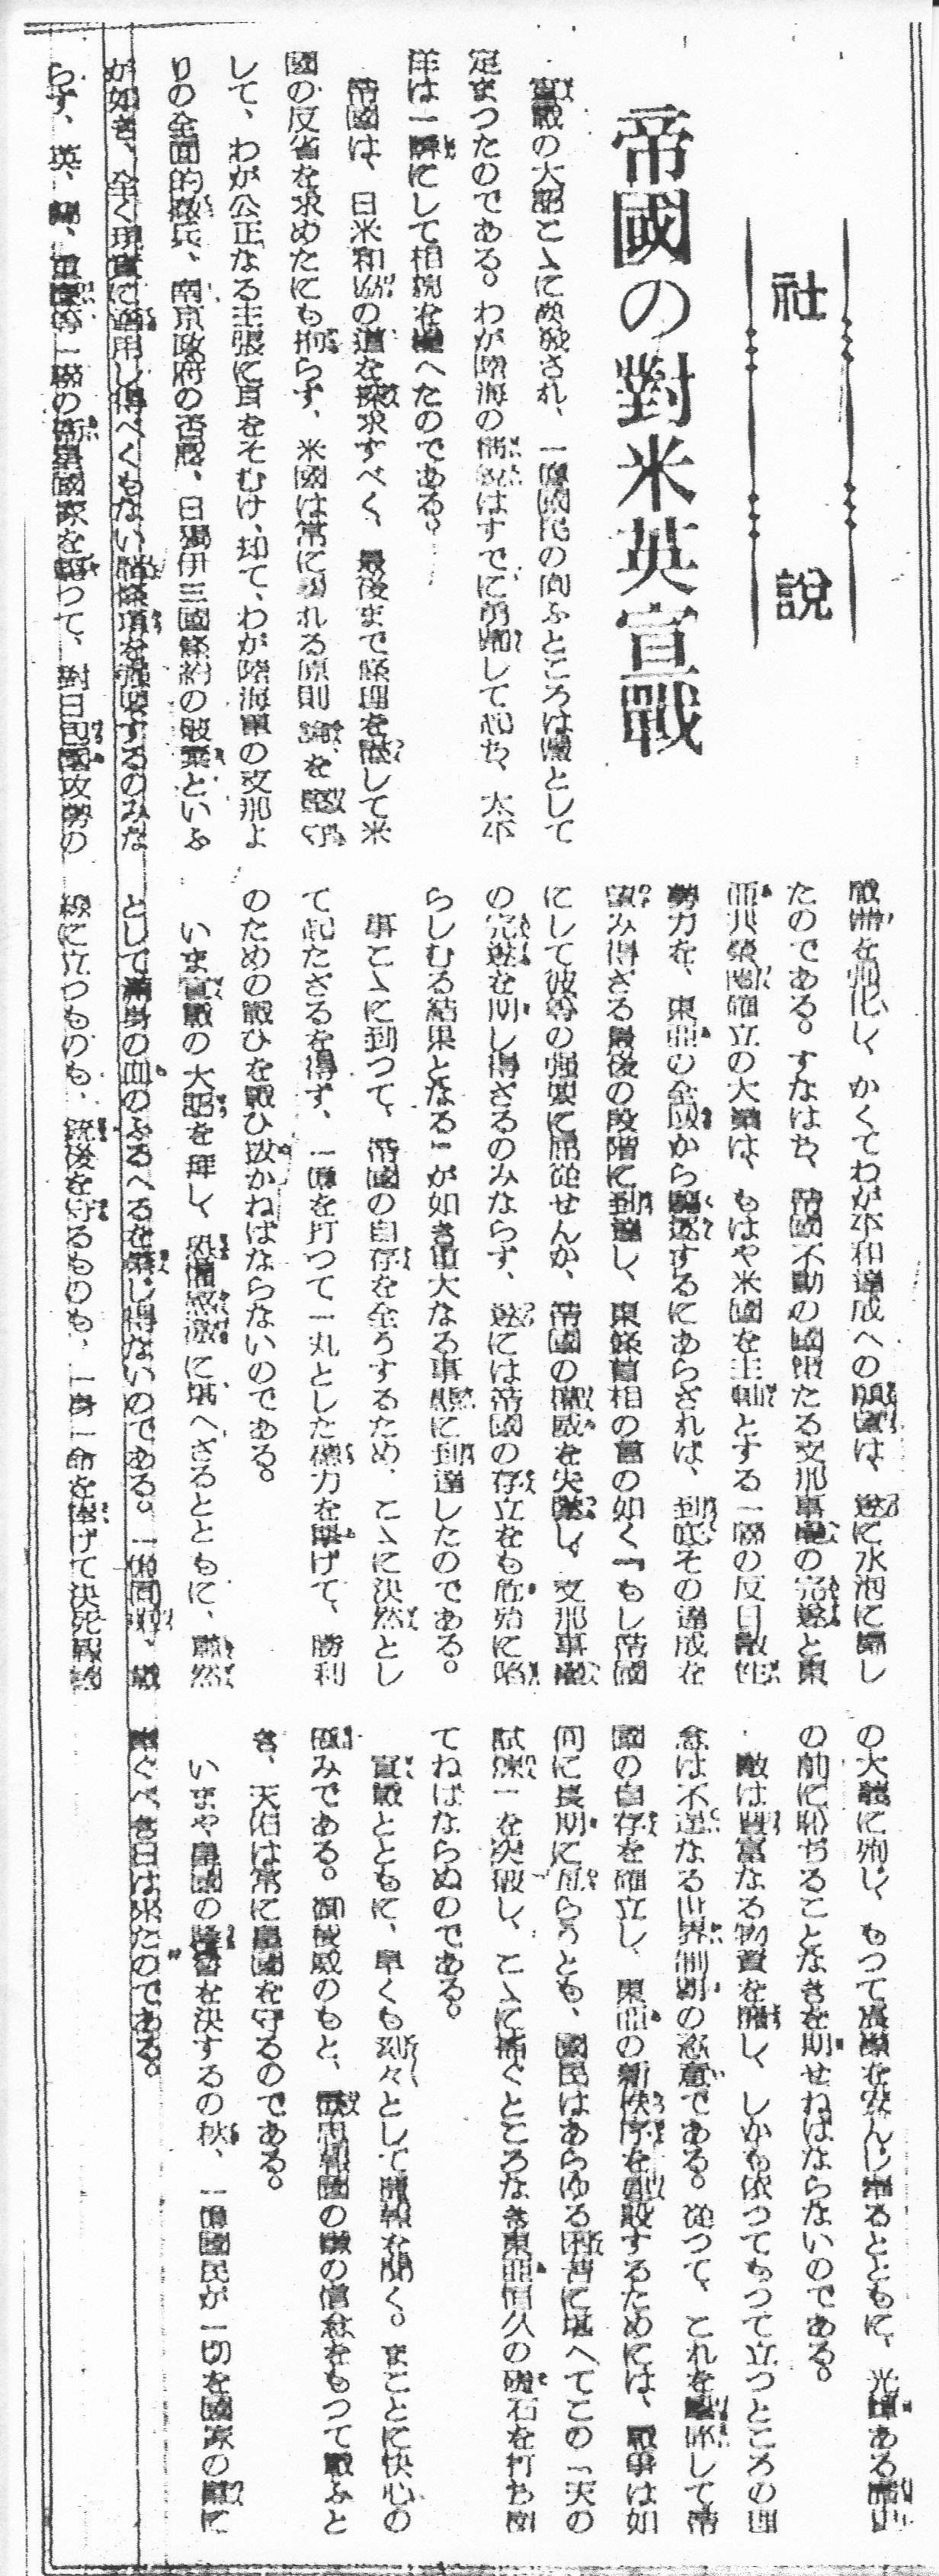 社說
帝國の對米英宣戰
宣戰の大詔こゝに渙發され、一億國民の向ふところは儼として
定まつたのである。わが陸海の精銳はすでに勇躍して起ち、太平
洋は一瞬にして相貌を變へたのである。
帝國は、日米和協の道を探求すべく、最後まで條理を盡して米
國の反省を求めたにも拘らず、米國は常に謬れる原則論を堅守
して、わが公正なる主張に耳をそむけ、却て、わが陸海軍の支那よ
りの全面的撤兵、南京政府の否認、日獨伊三國條約の破棄といふ
が如き、全く現實に適用し得べくもない諸條項を强要するのみな
らず、英、蘭、重慶等一聯の衛星國家を驅つて、對日包圍攻勢の
戰備を强化し、かくてわが平和達成への願望は、遂に水泡に歸し
たのである。すなはち、帝國不動の國策たる支那事變の完遂と東
亞共榮圈確立の大業は、もはや米國を主軸とする一聯の反日敵性
勢力を、東亞の全域から驅逐するにあらざれば、到底その達成を
望み得ざる最後の段階に到達し、東條首相の言の如く『もし帝國
にして彼等の强要に屈從せんか、帝國の權威を失墜し、支那事變
の完遂を期し得ざるのみならず、遂には帝國の存立をも危殆に陷
らしむる結果となる』が如き重大なる事態に到達したのである。
事こゝに到つて、帝國の自存を全うするため、こゝに決然とし
て起たざるを得ず、一億を打つて一丸とした總力を擧げて、勝利
のための戰ひを戰ひ拔かねばならないのである。
いま宣戰の大詔を拜し、恐懼感激に堪へざるとともに、肅然
として滿身の血のふるへるを禁じ得ないのである。一億同胞、戰
線に立つものも、銃後を守るものも、一身一命を捧げて決死報國
の大義に殉じ、もつて宸襟を安んじ奉るとともに、光輝ある歷史
の前に恥ぢることなきを期せねばならないのである。
敵は豐富なる物資を擁し、しかも依つてもつて立つところの理
念は不逞なる世界制覇の恣意である。從つて、これを擊碎して帝
國の自存を確立し、東亞の新秩序を建設するためには、戰爭は如
何に長期に亙らうとも、國民はあらゆる困苦に堪へてこの「天の
試煉」を突破し、こゝに搖ぐところなき東亞恒久の礎石を打ち樹
てねばならぬのである。
宣戰とともに、早くも刻々として捷報を聞く。まことに快心の
極みである。御稜威のもと、盡忠報國の鐵の信念をもつて戰ふと
き、天佑は常に皇國を守るのである。
いまや皇國の隆替を決するの秋、一億國民が一切を國家の難に
捧ぐべき日は來たのである。